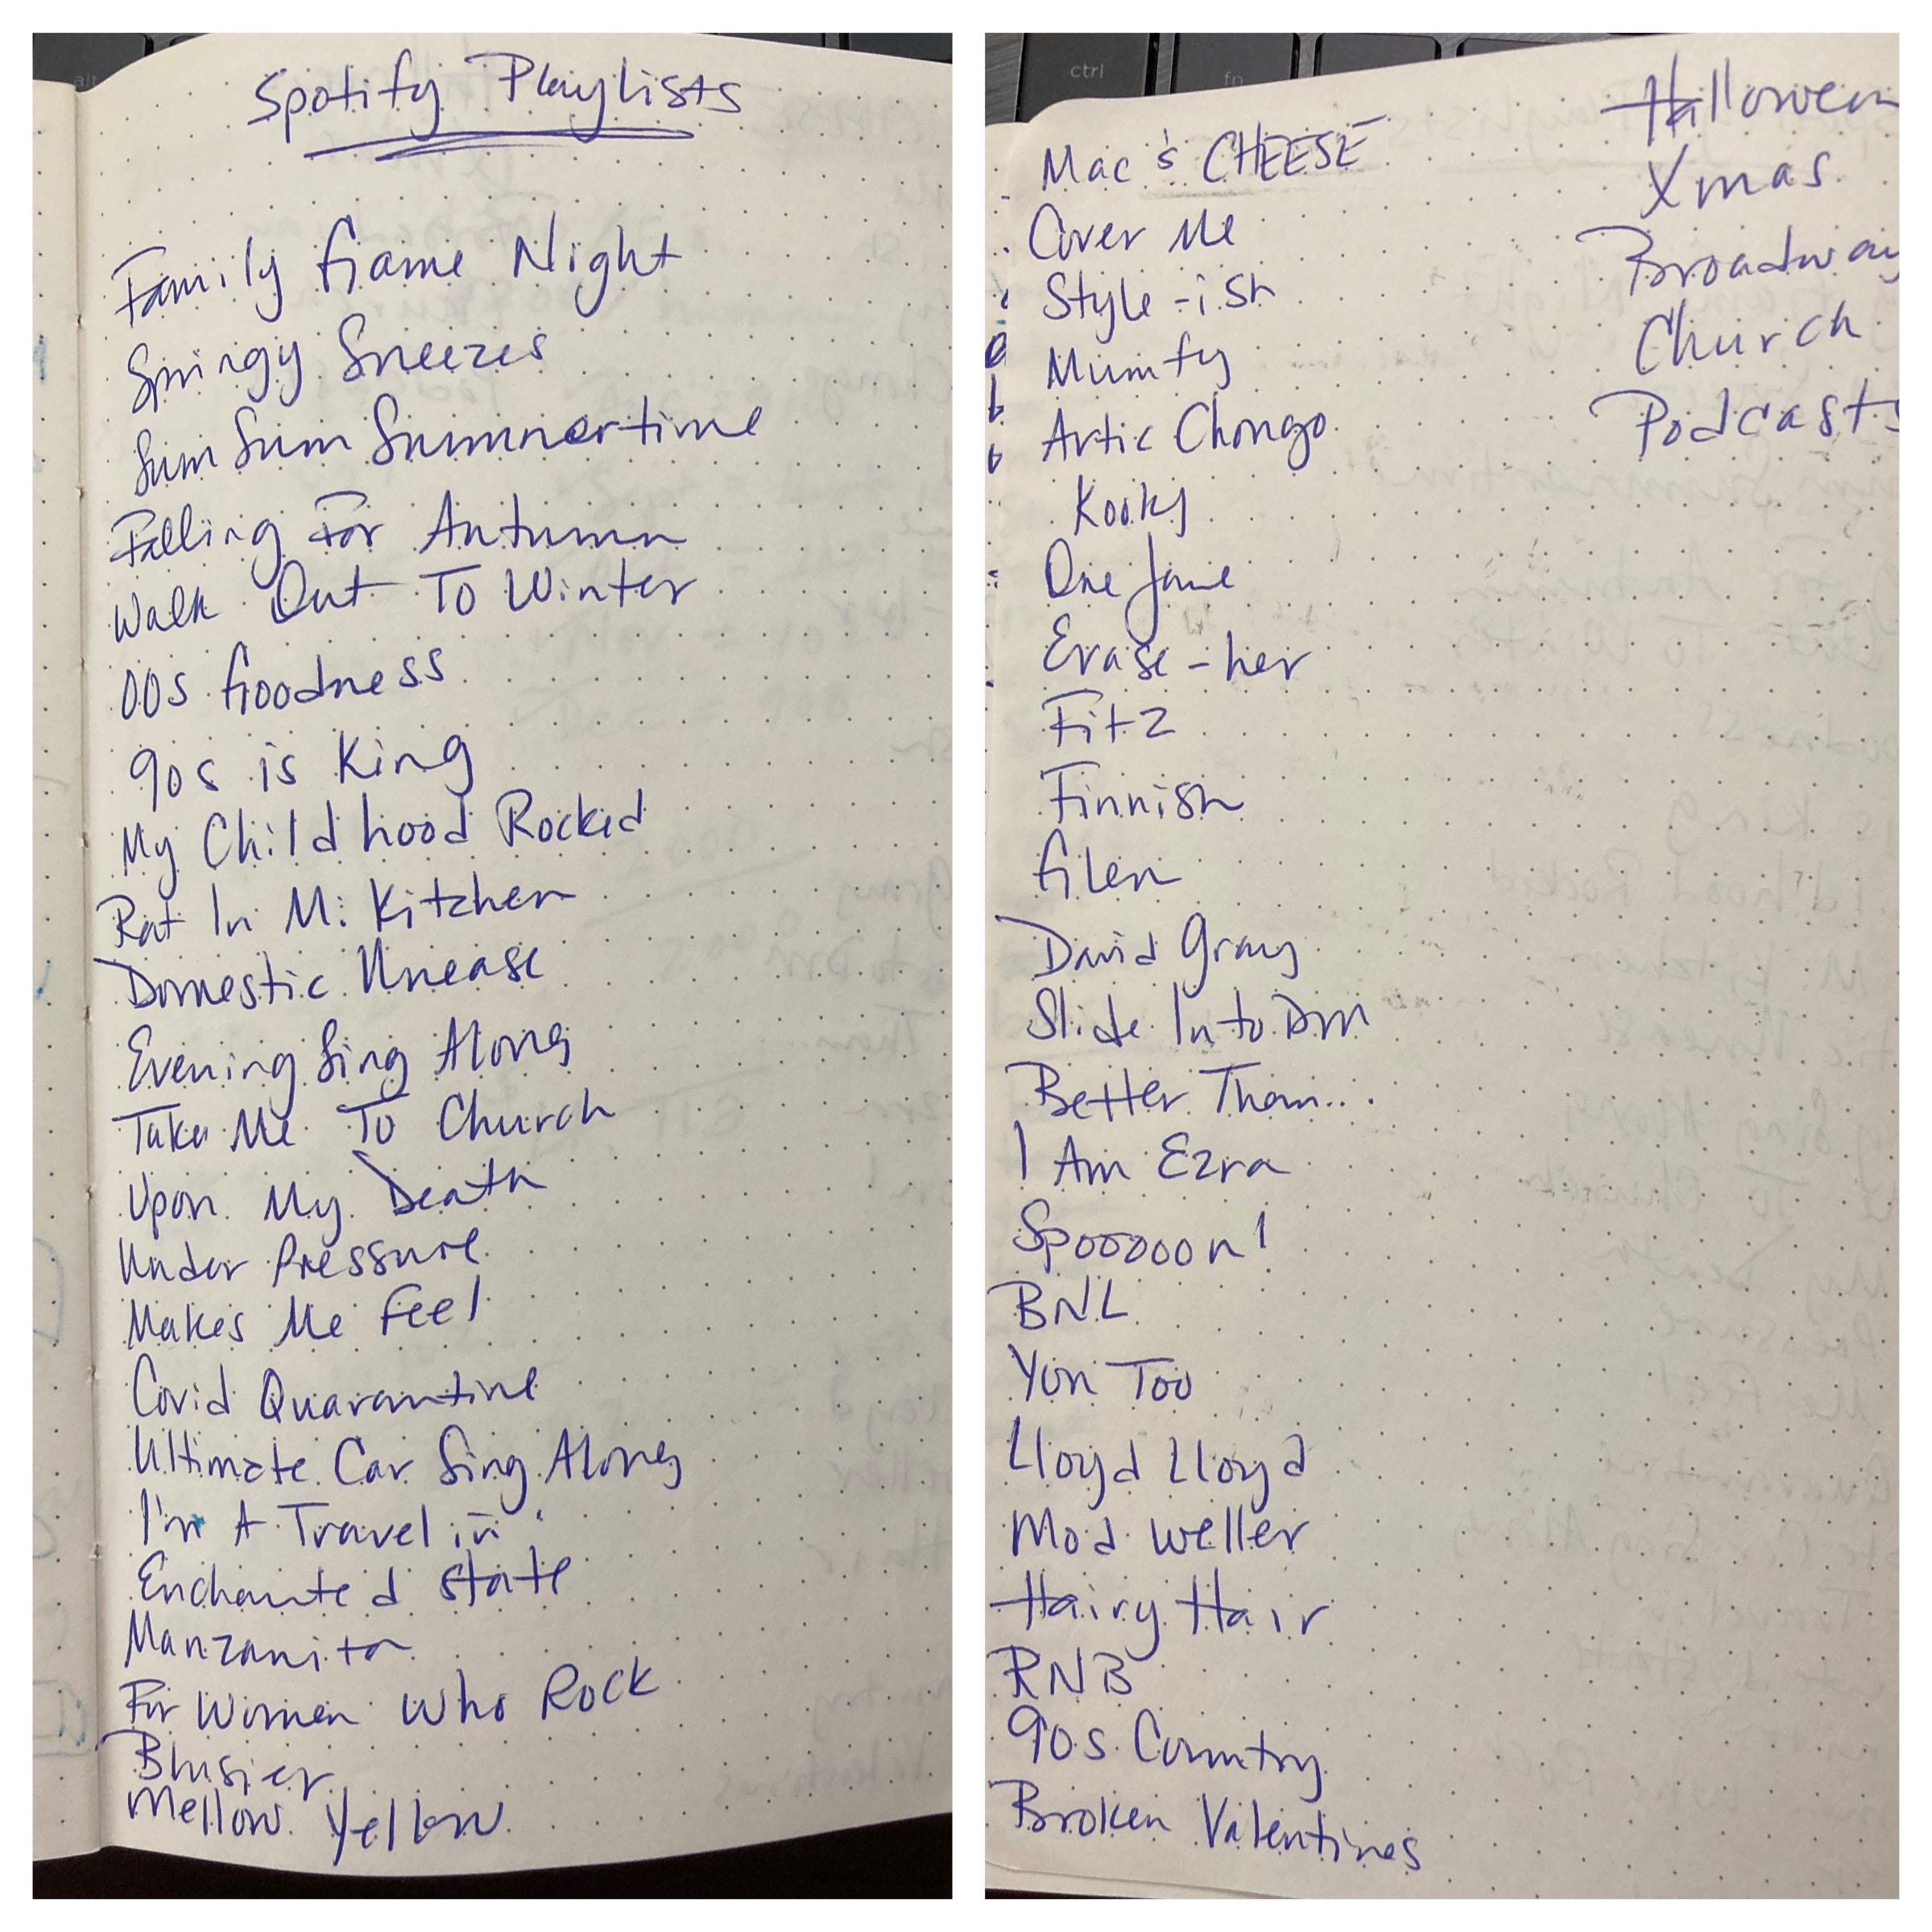 Spotify Playlists
Family Game Night
Springy Sneezes
Sum Sum Summertime
Falling For Autumn
Walk Out To Winter
00s Goodness
90s is King
My Childhood Rocked
Rat In Mi Kitchen
Domestic Unease
Evening Sing Along
Take Me To Church
Upon My Death
Under Pressure
Makes Me Feel
Covid Quarantine
Ultimate Car Sing Along
I'm A Travelin'
Enchanted State
Manzanita
For Women Who Rock
Blusier
Mellow Yellow
ctrl
fn
Mac's CHEESE
Cover Me
Style-ish
Mumfy
Artic Chongo
Kooky
One Jame
Erase-her
Fitz
Finnish
Glen
David Gray
Slide Into Dm
Better Than...
I Am Ezra
Spooooon!
BNL
You Too
Lloyd Lloyd
Mod Weller
Hairy Hair
RNB
90s Country
Broken Valentines
Halloween
Xmas
Broadway
Church
Podcasts